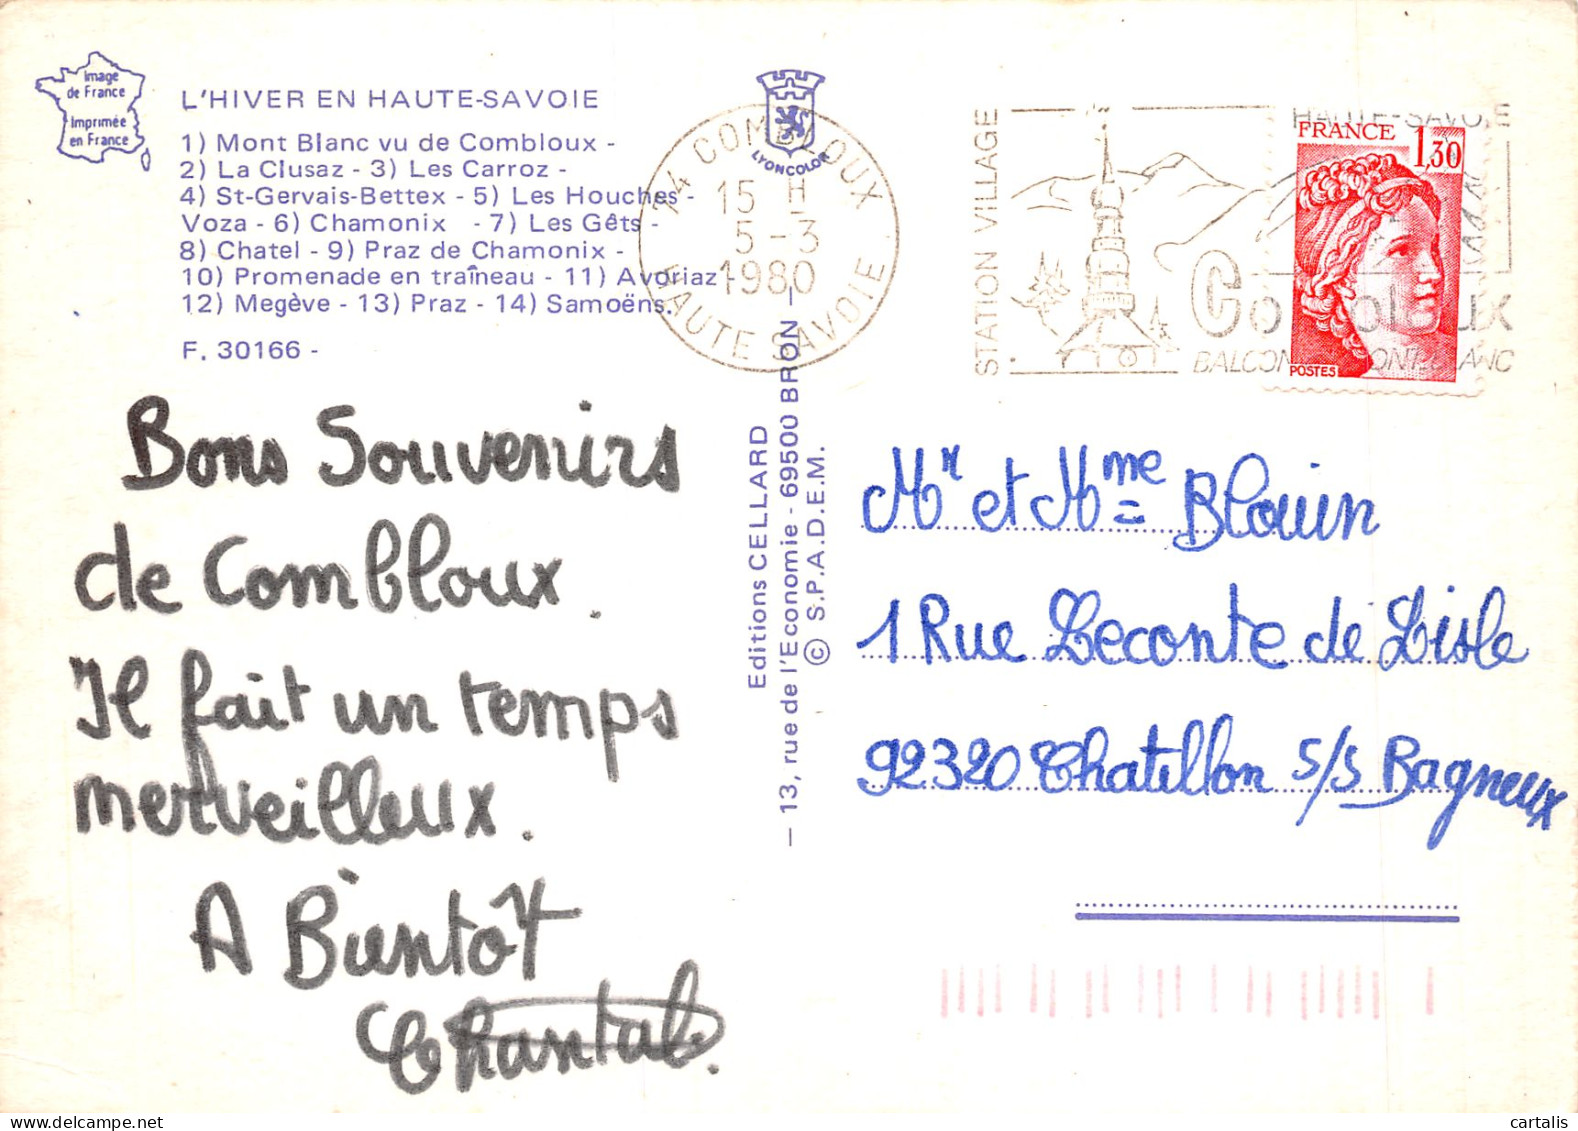 Image
de France
Imprimée
en France
L'HIVER EN HAUTE-SAVOIE
1) Mont Blanc vu de Combloux -
2) La Clusaz - 3) Les Carroz -
4) St-Gervais-Bettex - 5) Les Houches -
Voza - 6) Chamonix - 7) Les Gêts -
8) Chatel - 9) Praz de Chamonix -
10) Promenade en traîneau - 11) Avoriaz -
12) Megève - 13) Praz - 14) Samoëns.
F. 30166 -
Bons Souvenirs
de Combloux.
Il fait un temps
merveilleux.
A Bientôt
Chantal.
LYONCOLOR
74 COMBLOUX
15 H
5-3
1980
HAUTE SAVOIE
Editions CELLARD
— 13, rue de l'Economie - 69500 BRON —
© S.P.A.D.E.M.
STATION VILLAGE
HAUTE-SAVOIE
Combloux
BALCON MONT-BLANC
FRANCE
1,30
POSTES
Mr et Mme Blouin
1 Rue Leconte de Lisle
92320 Chatillon s/s Bagneux
cartalis